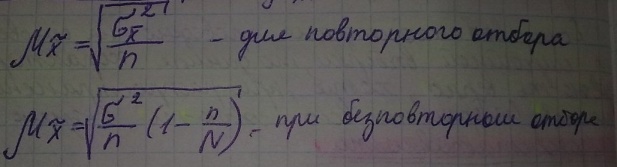 μx̃ = √(σx̃²/n) – для повторного отбора
μx̃ = √(σ²/n (1 – n/N)) – при бесповторном отборе